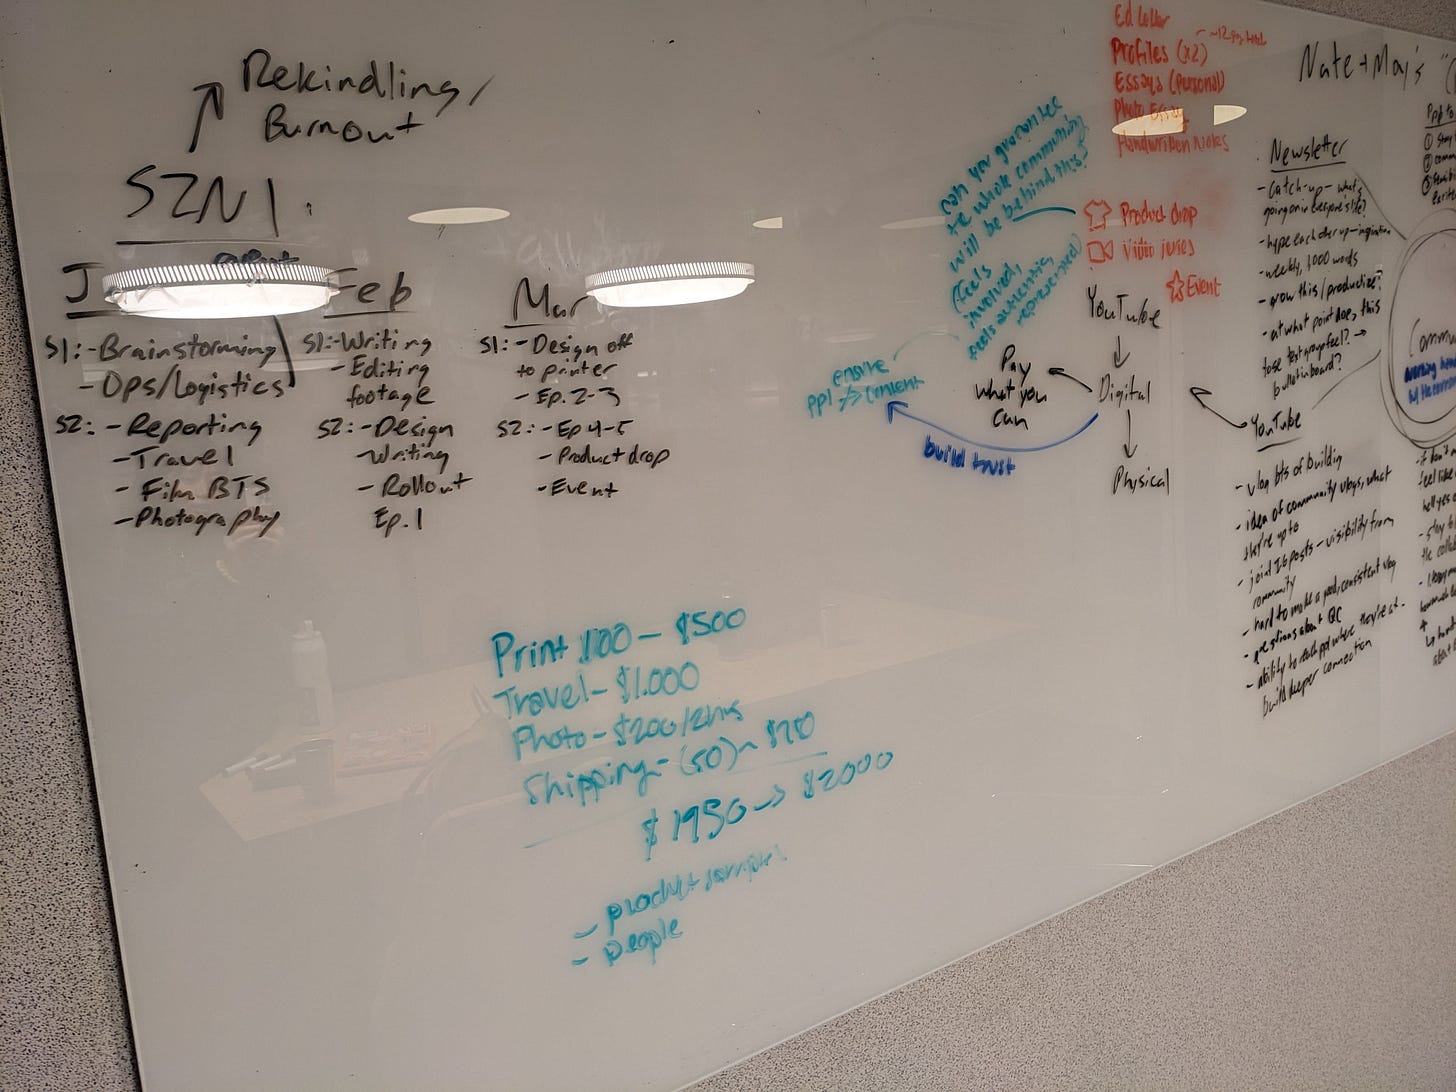 Rekindling/
Burnout
SZN 1
Feb
Mar
S1: - Brainstorming
- Ops/Logistics
S2: - Reporting
- Travel
- Film BTS
- Photography
S1: - Writing
- Editing
footage
S2: - Design
- Writing
- Rollout
Ep. 1
S1: - Design off
to printer
- Ep. 2-3
S2: - Ep 4-5
- Product drop
- Event
Print 100 - $500
Travel - $1,000
Photo - $200/2hrs
Shipping - (50) ~
$1950 -> $2000
- product samples
- people
can you guarantee
the whole community
will be behind this?
(feels
involved,
feels authentic,
represented)
ppl
content
build trust
Pay
what you
can
Ed Letter
Profiles (x2)
Essays (personal)
Photo Essay
Handwritten Notes
Product drop
Event
YouTube
Digital
Physical
Nate + May's
Newsletter
- Catch-up - what's
going on in everyone's life?
- hype each other up - inspiration
- weekly, 1000 words
- grow this/productize?
- at what point does this
to
bulletin board?
YouTube
- vlog bts of building
- idea of community vlogs, what
they're up to
- joint IG posts - visibility from
community
- hard to make a good, consistent vlog
- questions about QC
- ability to reach ppl where they're at -
build deeper connection